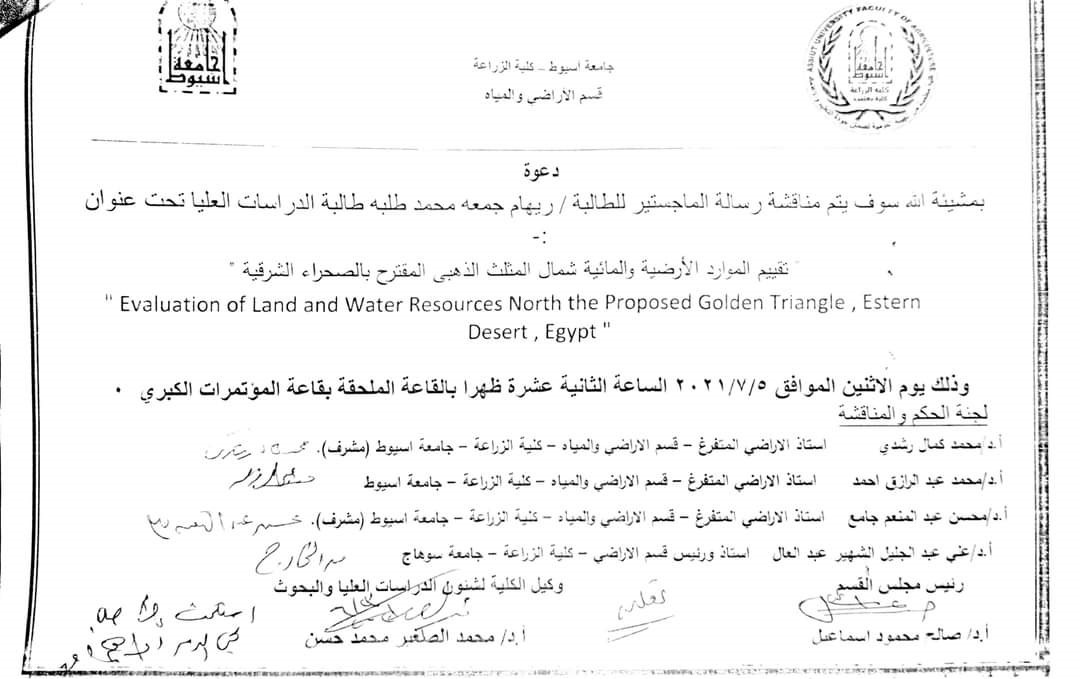 جامعة اسيوط
ASSIUT UNIVERSITY FACULTY OF AGRICULTURE
جامعة اسيوط
كلية الزراعة
كلية معتمدة
جامعة اسيوط – كلية الزراعة
قسم الأراضي والمياه
دعوة
بمشيئة الله سوف يتم مناقشة رسالة الماجستير للطالبة / ريهام جمعه محمد طلبه طالبة الدراسات العليا تحت عنوان
:-
" تقييم الموارد الأرضية والمائية شمال المثلث الذهبى المقترح بالصحراء الشرقية "
" Evaluation of Land and Water Resources North the Proposed Golden Triangle , Estern
Desert , Egypt "
وذلك يوم الاثنين الموافق ٢٠٢١/٧/٥ الساعة الثانية عشرة ظهرا بالقاعة الملحقة بقاعة المؤتمرات الكبري ٠
لجنة الحكم والمناقشة
أ.د/محمد كمال رشدي استاذ الاراضي المتفرغ – قسم الاراضي والمياه – كلية الزراعة – جامعة اسيوط (مشرف).
أ.د/محمد عبد الرازق احمد استاذ الاراضي المتفرغ – قسم الاراضي والمياه – كلية الزراعة – جامعة اسيوط
أ.د/محسن عبد المنعم جامع استاذ الاراضي المتفرغ – قسم الاراضي والمياه – كلية الزراعة – جامعة اسيوط (مشرف).
أ.د/علي عبد الجليل الشهير عبد العال استاذ ورئيس قسم الاراضي – كلية الزراعة – جامعة سوهاج من الخارج
رئيس مجلس القسم وكيل الكلية لشئون الدراسات العليا والبحوث
أ.د/ صالح محمود اسماعيل أ.د/ محمد الصغير محمد حسن